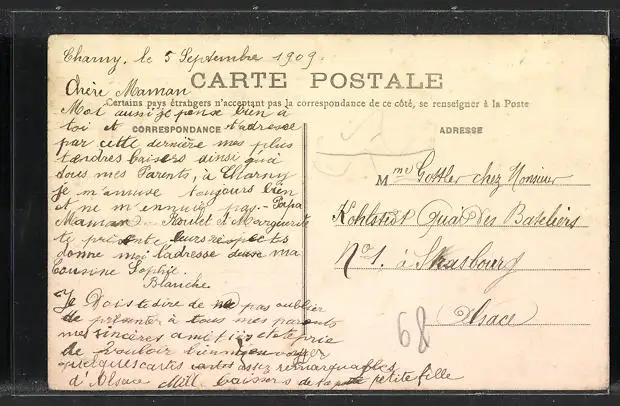 Charny, le 5 Septembre 1909.
CARTE POSTALE
Certains pays étrangers n'acceptant pas la correspondance de ce côté, se renseigner à la Poste
CORRESPONDANCE
Chère Maman
Moi aussi je pense bien à
toi et t'adresse
par cette dernière mes plus
tendres baisers ainsi qu'à
tous mes Parents, à Charny
je m'amuse toujours bien
et ne m'ennuie pas. Papa
Maman et Marguerite
te présente leurs respects
donne moi l'adresse de ma
Cousine Sophie.
Blanche.
Je Dois te dire de ne pas oublier
de présenter à tous mes parents
mes sincères amitiés et te prie
de vouloir bien m'envoyer
quelques cartes assez remarquables
d'Alsace Mill baisers de ta petite fille
ADRESSE
Mme Gottler chez Monsieur
Kohlstedt Quai des Bateliers
No 1. à Strasbourg
Alsace
68